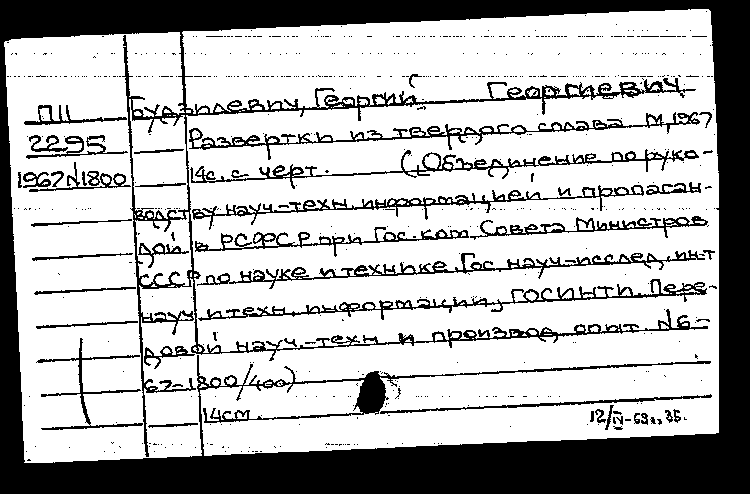 Будзилевич, Георгий Георгиевич
П11
2295
1967 N1800
Развертки из твердого сплава М, 1967
14с. с черт. (Объединение по руко-
водству науч-техн. информацией и пропаган-
дой в РСФСР при Гос. ком. Совета Министров
СССР по науке и технике. Гос. науч-исслед. ин-т
науч. и техн. информации, ГОСИНТИ. Пере-
довой науч.-техн и производ. опыт. N6-
67-1800/400)
14см.
12/IV-63г., 35.